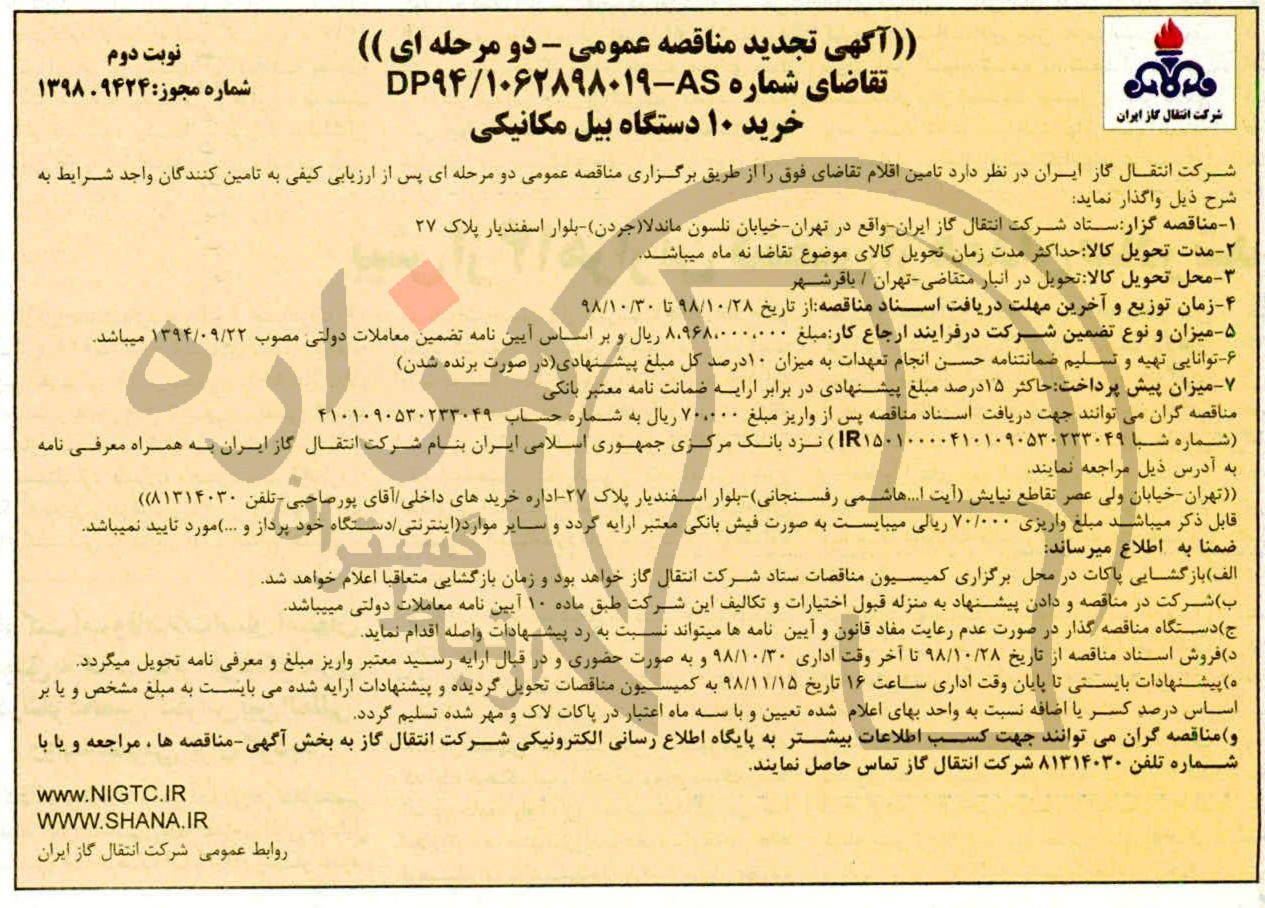 ((آگهی تجدید مناقصه عمومی – دو مرحله ای ))
تقاضای شماره DP۹۴/۱۰۶۲۸۹۸۰۱۹–AS
خرید ۱۰ دستگاه بیل مکانیکی
نوبت دوم
شماره مجوز:۱۳۹۸.۹۴۲۴
شرکت انتقال گاز ایران
شرکت انتقال گاز ایران در نظر دارد تامین اقلام تقاضای فوق را از طریق برگزاری مناقصه عمومی دو مرحله ای پس از ارزیابی کیفی به تامین کنندگان واجد شرایط به
شرح ذیل واگذار نماید:
۱–مناقصه گزار:ستاد شرکت انتقال گاز ایران–واقع در تهران–خیابان نلسون ماندلا(جردن)–بلوار اسفندیار پلاک ۲۷
۲–مدت تحویل کالا:حداکثر مدت زمان تحویل کالای موضوع تقاضا نه ماه میباشد.
۳–محل تحویل کالا:تحویل در انبار متقاضی–تهران / باقرشهر
۴–زمان توزیع و آخرین مهلت دریافت اسناد مناقصه:از تاریخ ۹۸/۱۰/۲۸ تا ۹۸/۱۰/۳۰
۵–میزان و نوع تضمین شرکت درفرایند ارجاع کار:مبلغ ۸،۹۶۸،۰۰۰،۰۰۰ ریال و بر اساس آیین نامه تضمین معاملات دولتی مصوب ۱۳۹۴/۰۹/۲۲ میباشد.
۶–توانایی تهیه و تسلیم ضمانتنامه حسن انجام تعهدات به میزان ۱۰درصد کل مبلغ پیشنهادی(در صورت برنده شدن)
۷–میزان پیش پرداخت:حاکثر ۱۵درصد مبلغ پیشنهادی در برابر ارایه ضمانت نامه معتبر بانکی
مناقصه گران می توانند جهت دریافت اسناد مناقصه پس از واریز مبلغ ۷۰،۰۰۰ ریال به شماره حساب ۴۱۰۱۰۹۰۵۳۰۲۳۳۰۴۹
(شماره شبا IR۱۵۰۱۰۰۰۰۴۱۰۱۰۹۰۵۳۰۲۳۳۰۴۹ ) نزد بانک مرکزی جمهوری اسلامی ایران بنام شرکت انتقال گاز ایران به همراه معرفی نامه
به آدرس ذیل مراجعه نمایند.
((تهران–خیابان ولی عصر تقاطع نیایش (آیت ا...هاشمی رفسنجانی)–بلوار اسفندیار پلاک ۲۷–اداره خرید های داخلی/آقای پورصاحبی–تلفن ۸۱۳۱۴۰۳۰))
قابل ذکر میباشد مبلغ واریزی ۷۰/۰۰۰ ریالی میبایست به صورت فیش بانکی معتبر ارایه گردد و سایر موارد(اینترنتی/دستگاه خود پرداز و ...)مورد تایید نمیباشد.
ضمنا به اطلاع میرساند:
الف)بازگشایی پاکات در محل برگزاری کمیسیون مناقصات ستاد شرکت انتقال گاز خواهد بود و زمان بازگشایی متعاقبا اعلام خواهد شد.
ب)شرکت در مناقصه و دادن پیشنهاد به منزله قبول اختیارات و تکالیف این شرکت طبق ماده ۱۰ آیین نامه معاملات دولتی میبیاشد.
ج)دستگاه مناقصه گذار در صورت عدم رعایت مفاد قانون و آیین نامه ها میتواند نسبت به رد پیشهادات واصله اقدام نماید.
د)فروش اسناد مناقصه از تاریخ ۹۸/۱۰/۲۸ تا آخر وقت اداری ۹۸/۱۰/۳۰ و به صورت حضوری و در قبال ارایه رسید معتبر واریز مبلغ و معرفی نامه تحویل میگردد.
ه)پیشنهادات بایستی تا پایان وقت اداری ساعت ۱۶ تاریخ ۹۸/۱۱/۱۵ به کمیسیون مناقصات تحویل گردیده و پیشنهادات ارایه شده می بایست به مبلغ مشخص و یا بر
اساس درصد کسر یا اضافه نسبت به واحد بهای اعلام شده تعیین و با سه ماه اعتبار در پاکات لاک و مهر شده تسلیم گردد.
و)مناقصه گران می توانند جهت کسب اطلاعات بیشتر به پایگاه اطلاع رسانی الکترونیکی شرکت انتقال گاز به بخش آگهی–مناقصه ها ، مراجعه و یا با
شماره تلفن ۸۱۳۱۴۰۳۰ شرکت انتقال گاز تماس حاصل نمایند.
www.NIGTC.IR
WWW.SHANA.IR
روابط عمومی شرکت انتقال گاز ایران
هزاره